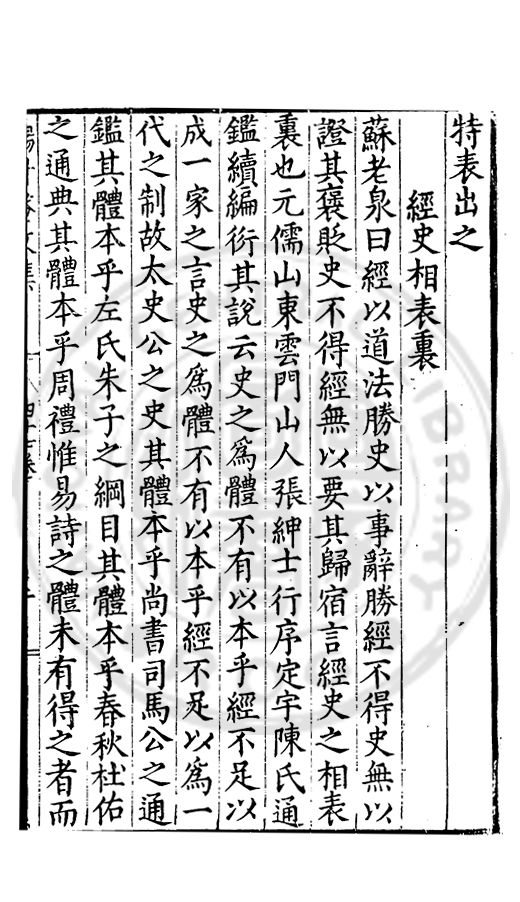 特表出之
經史相表裏
蘇老泉曰經以道法勝史以事辭勝經不得史無以
證其褒貶史不得經無以要其歸宿言經史之相表
裏也元儒山東雲門山人張紳士行序定宇陳氏通
鑑續編衍其說云史之爲體不有以本乎經不足以
成一家之言史之爲體不有以本乎經不足以爲一
代之制故太史公之史其體本乎尚書司馬公之通
鑑其體本乎左氏朱子之綱目其體本乎春秋杜佑
之通典其體本乎周禮惟易詩之體未有得之者而